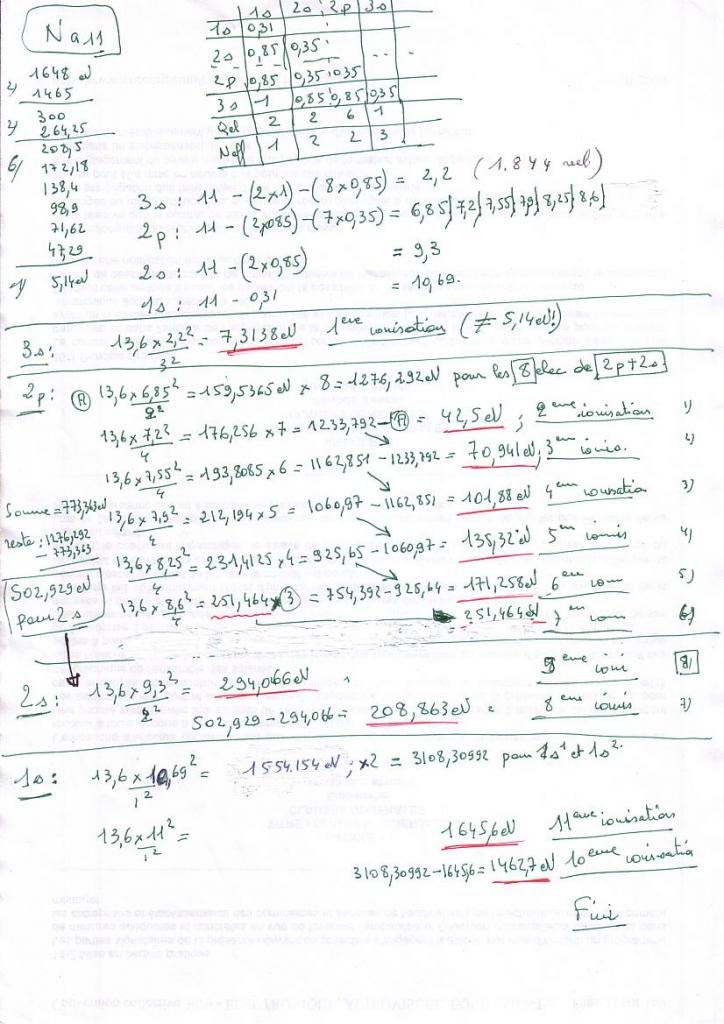 Na 11
1s 2s 2p 3s
1s 0,31
2s 0,85 0,35 .. .
2p 0,85 0,35 0,35
3s 1 0,85 0,85 0,35
Qel 2 2 6 1
Neff 1 2 2 3
1648 eV
1465
300
264,25
208,5
6) 172,18
138,4
98,9
71,62
47,29
1) 5,14eV
3s : 11 - (2x1) - (8x0,85) = 2,2 (1.844 reel)
2p : 11 - (2x085) - (7x0,35) = 6,85} 7,2} 7,55} 7,9} 8,25} 8,6}
2s : 11 - (2x0,85) = 9,3
1s : 11 - 0,31 = 10,69.
3s : 13,6 x 2,2² / 3² = 7,3138eV 1ere ionisation (≠ 5,14eV!)
2p : (A) 13,6 x 6,85² / 2² = 159,5365eV x 8 = 1276,292eV pour les 8 elec de 2p+2s
13,6 x 7,2² / 4 = 176,256 x 7 = 1233,792 - (A) = 42,5eV ; 2eme ionisation 1)
13,6 x 7,55² / 4 = 193,8085 x 6 = 1162,851 - 1233,792 = 70,941eV, 3em ionis. 2)
Somme = 773,363eV
13,6 x 7,9² / 4 = 212,194 x 5 = 1060,97 - 1162,851 = 101,88eV 4em ionisation 3)
reste : 1276,292
- 773,363
13,6 x 8,25² / 4 = 231,4125 x 4 = 925,65 - 1060,97 = 135,32eV 5em ionis 4)
502,929eV
pour 2s
13,6 x 8,6² / 4 = 251,464 x (3) = 754,392 - 925,64 = 171,258eV 6em ioni 5)
251,464eV 7em ioni 6)
2s : 13,6 x 9,3² / 2² = 294,066eV 9eme ioni 8)
502,929 - 294,066 = 208,863eV 8eme ionis 7)
1s : 13,6 x 10,69² / 1² = 1554.154eV ; x2 = 3108,30992 pour 1s¹ et 1s².
13,6 x 11² / 1² = 1645,6eV 11eme ionisation
3108,30992 - 1645,6 = 1462,7eV 10eme ionisation
Fini